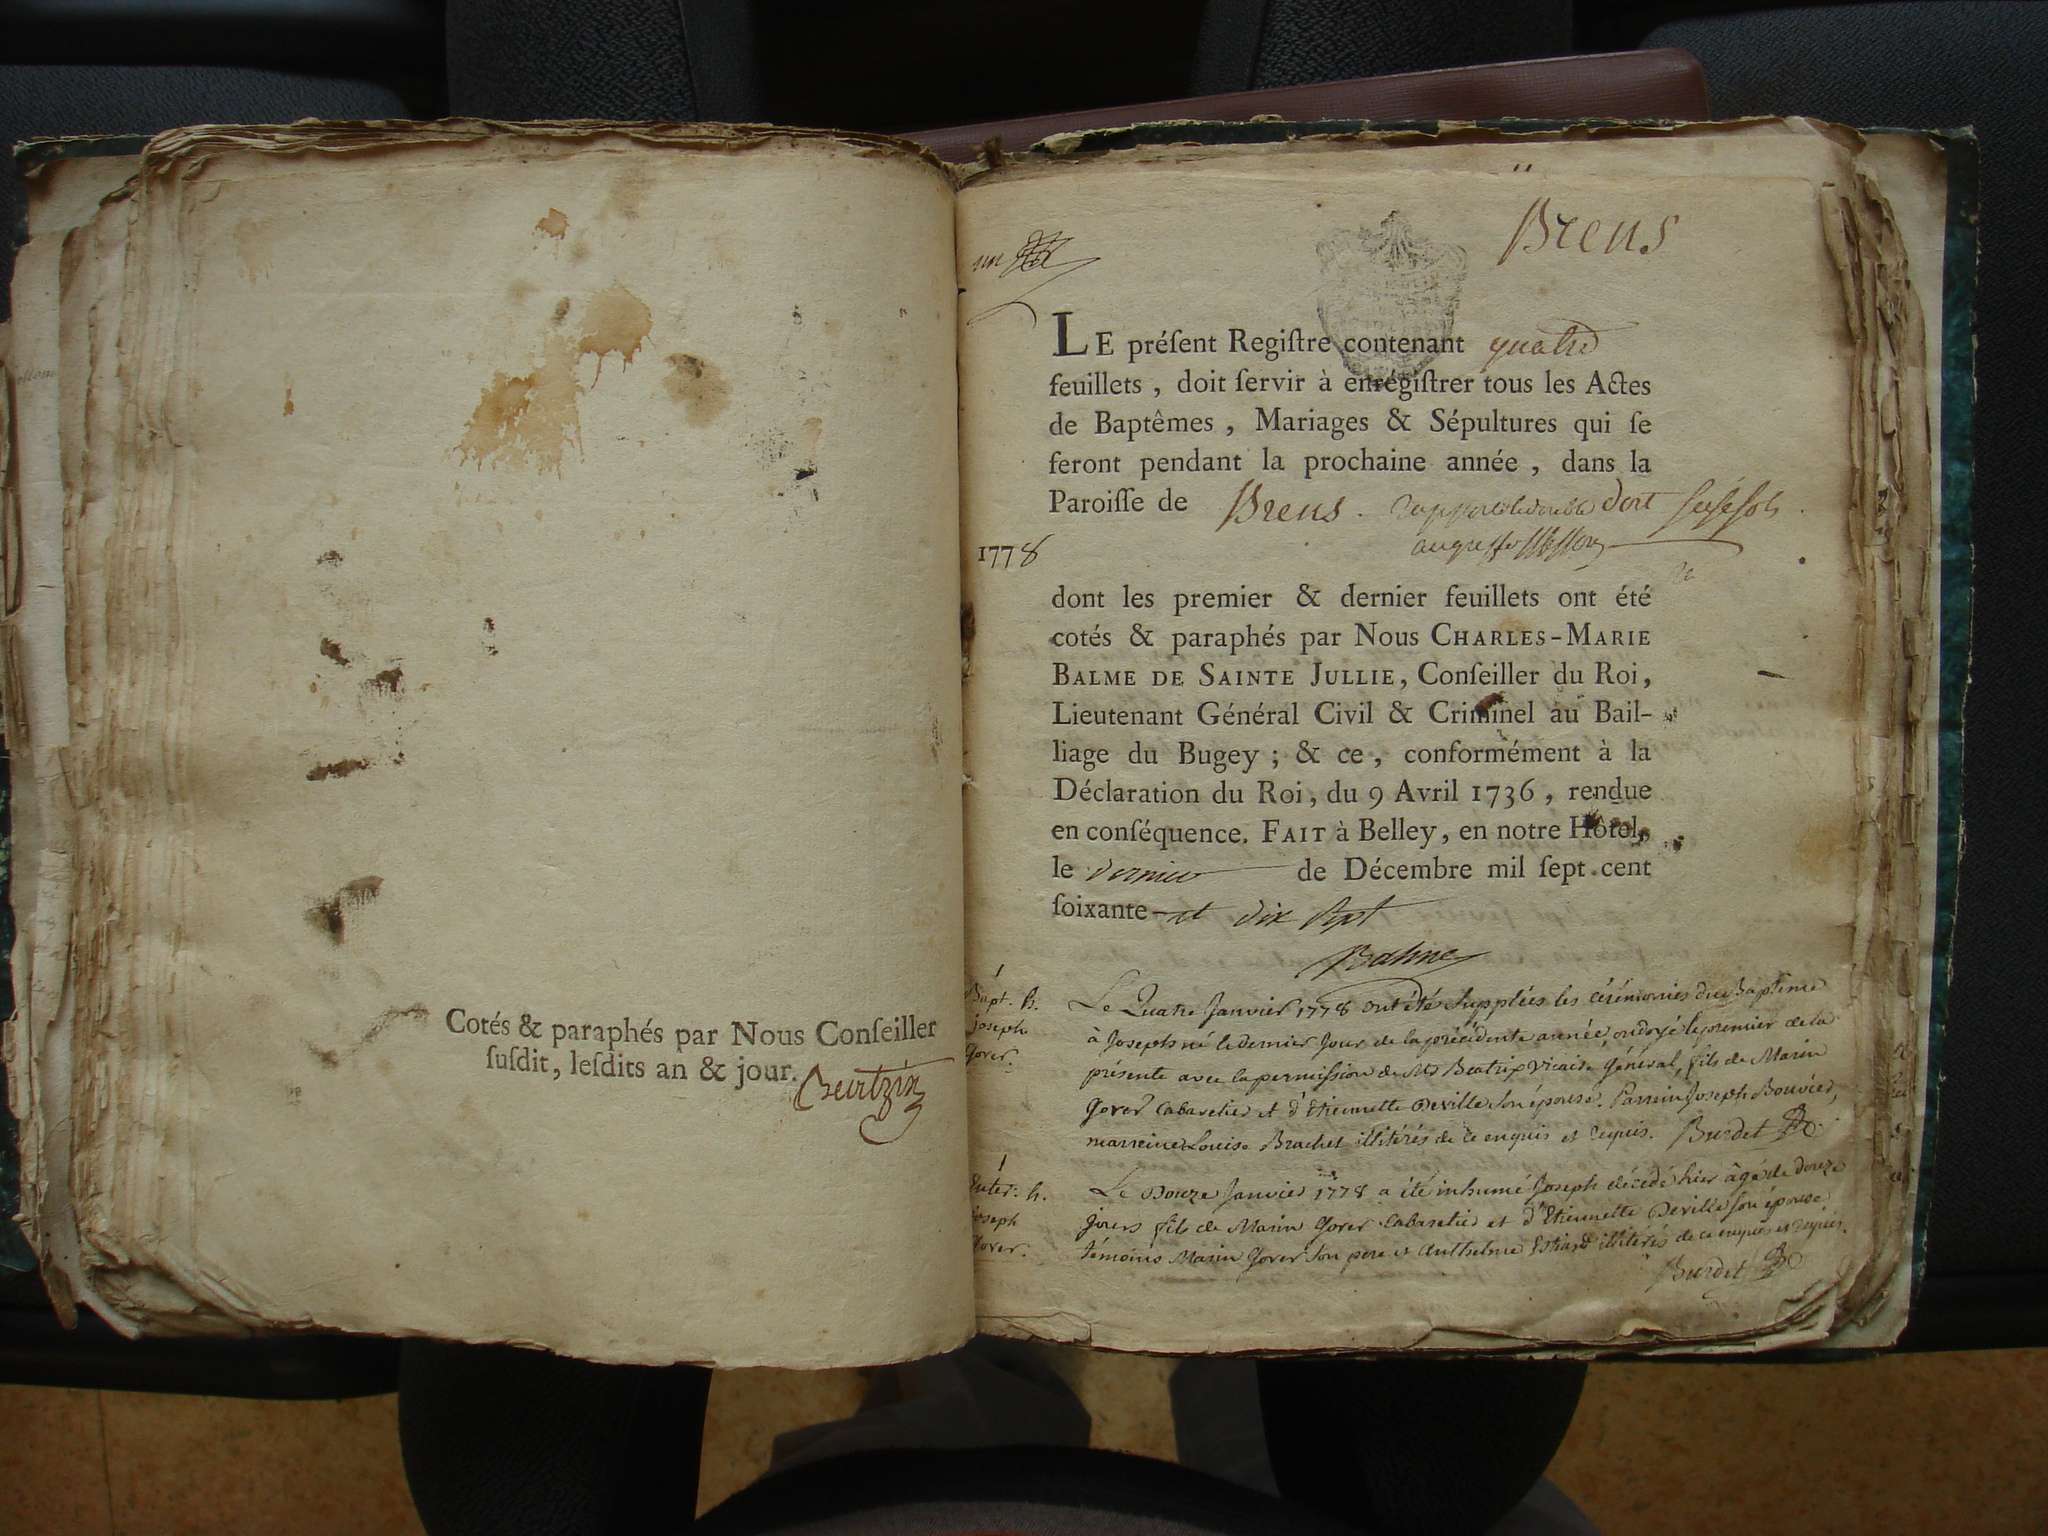 Cotés & paraphés par Nous Conſeiller
ſuſdit, leſdits an & jour.
Breus
un
LE préſent Regiſtre contenant quatre
feuillets, doit ſervir à enrégiſtrer tous les Actes
de Baptêmes, Mariages & Sépultures qui ſe
feront pendant la prochaine année, dans la
Paroiſſe de Breus.
1778
dont les premier & dernier feuillets ont été
cotés & paraphés par Nous CHARLES-MARIE
BALME DE SAINTE JULLIE, Conſeiller du Roi,
Lieutenant Général Civil & Criminel au Bail-
liage du Bugey; & ce, conformément à la
Déclaration du Roi, du 9 Avril 1736, rendue
en conſéquence. FAIT à Belley, en notre Hôtel,
le dernier de Décembre mil ſept cent
ſoixante et dix sept
Balme
Bapt. h.
Joseph
Gover.
Le Quatre Janvier 1778 ont étés supplées les cérémonies du Baptême
à Joseph né le dernier jour de la précédente année, ondoyé le premier de la
présente avec la permission de Mr Beatrix Vicaire Général, fils de Marin
Gover Cabaretier et d'Etiennette Deville son épouse. Parrein Joseph Bouvier,
marreine Louise Brachet illitérés de ce enquis et requis. Burdet
Enter. h.
Joseph
Gover.
Le Douze Janvier 1778 a été inhumé Joseph décédé hier âgé de douze
jours fils de Marin Gover Cabaretier et d'Etiennette Deville son épouse
témoins Marin Gover son pere et Anthelme illitérés de ce enquis et requis.
Burdet